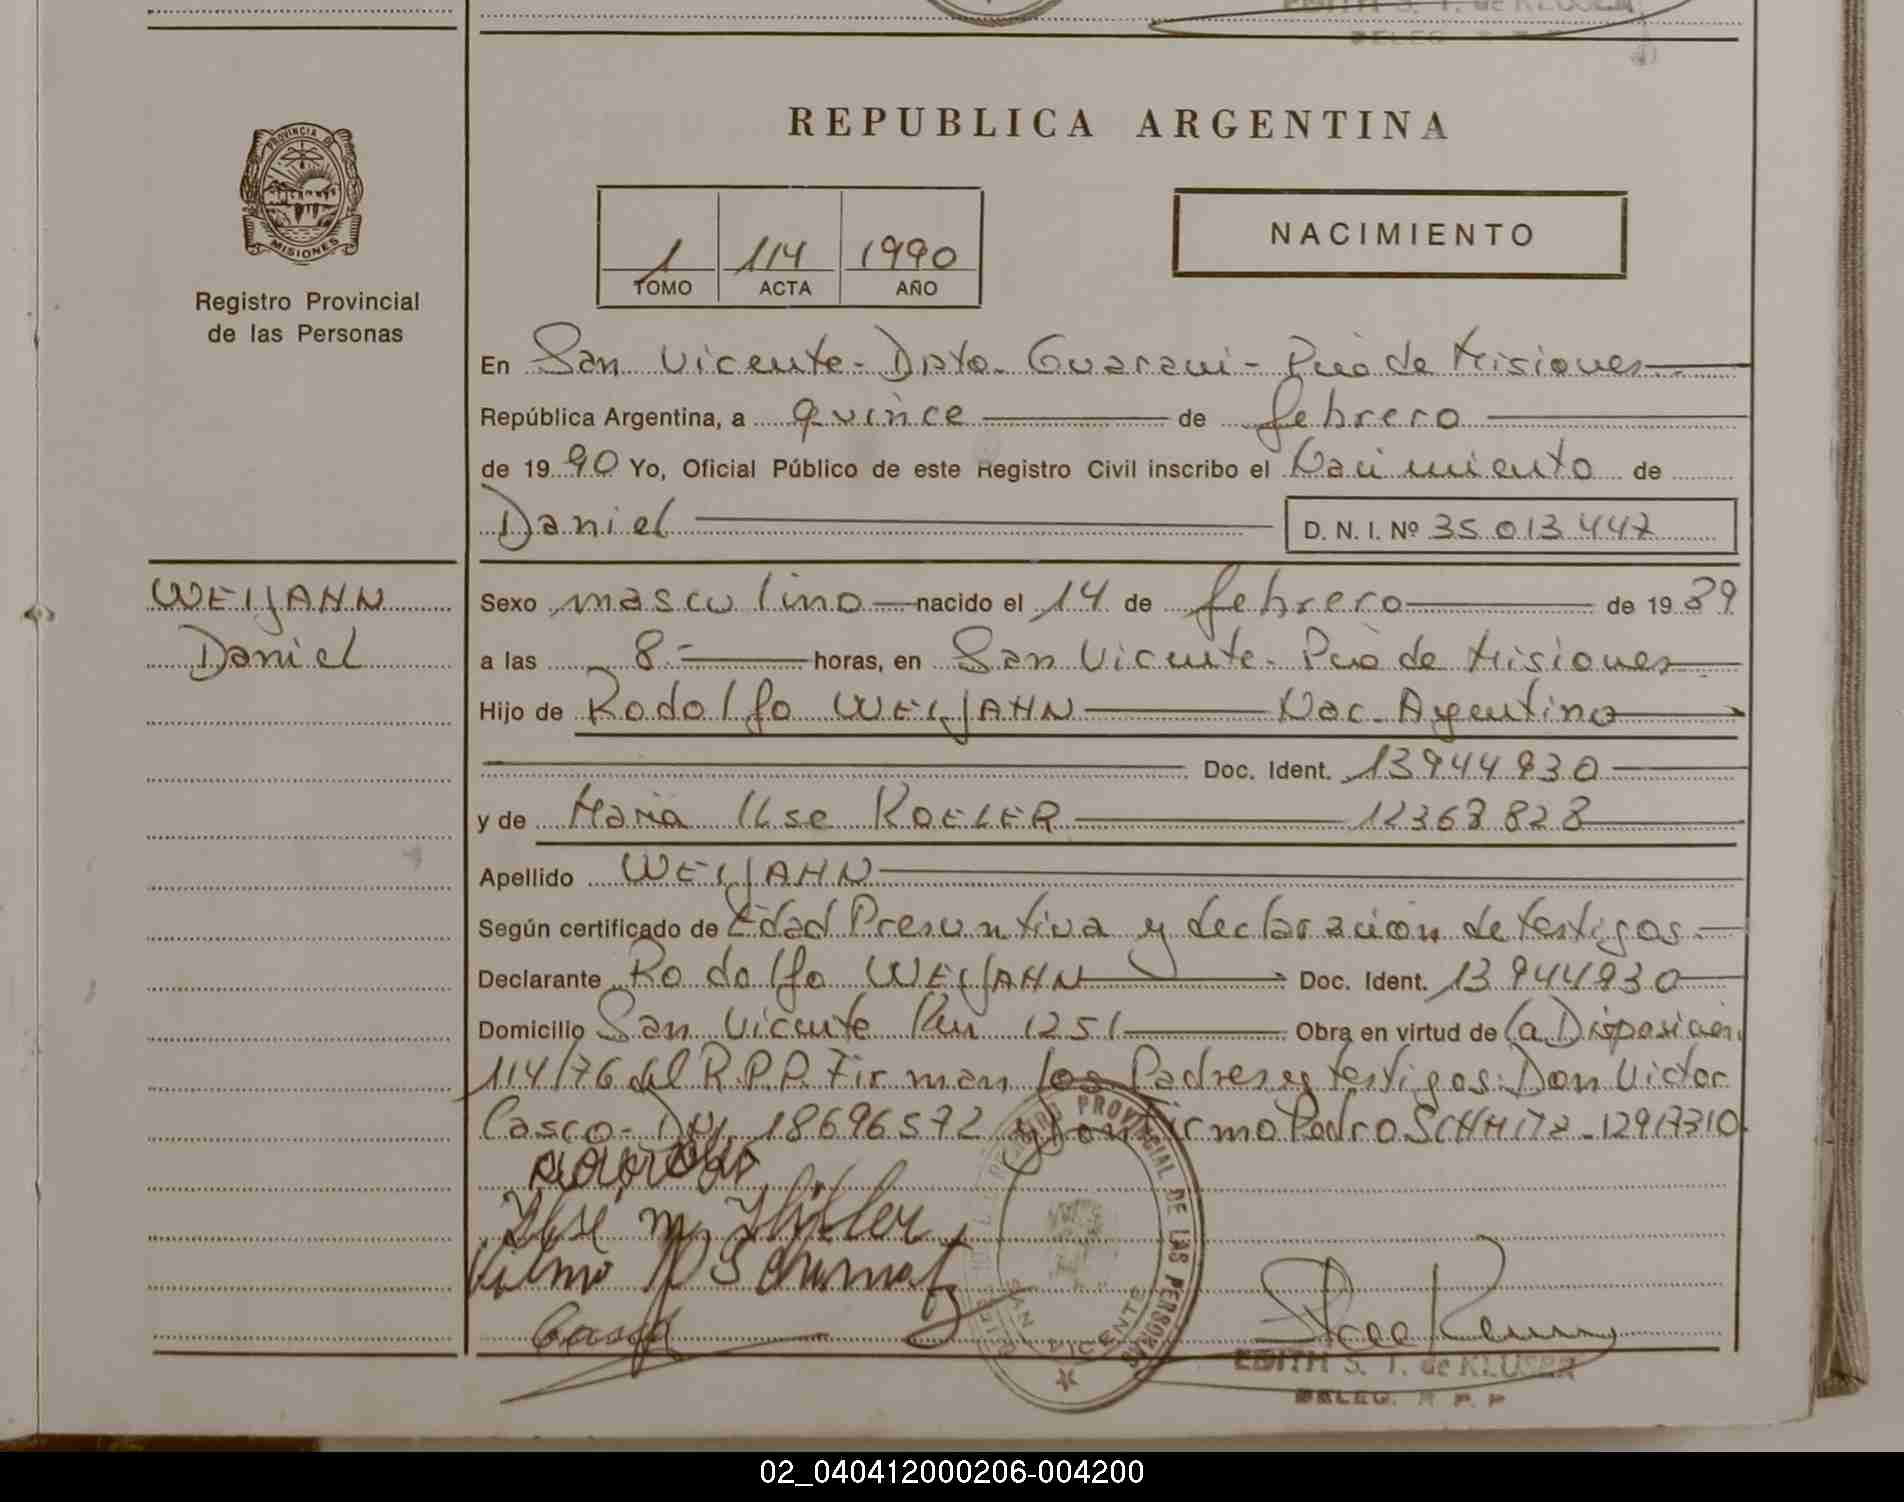 EDITH S. T. de KLUSER
DELEG. R. P. P.
REPUBLICA ARGENTINA
PROVINCIA DE
MISIONES
Registro Provincial
de las Personas
1 114 1990
TOMO ACTA AÑO
NACIMIENTO
En San Vicente - Dpto. Guarani - Pcia de Misiones
República Argentina, a quince de febrero
de 1990 Yo, Oficial Público de este Registro Civil inscribo el Nacimiento de
Daniel D. N. I. Nº 35.013.447
WEIJAHN
Daniel
Sexo masculino nacido el 14 de febrero de 1989
a las 8 horas, en San Vicente - Pcia de Misiones
Hijo de Rodolfo WEIJAHN Nac. Argentino
Doc. Ident. 13944930
y de Maria Ilse KOELER 12368828
Apellido WEIJAHN
Según certificado de Edad Presuntiva y declaración de testigos
Declarante Rodolfo WEIJAHN Doc. Ident. 13944930
Domicilio San Vicente Km 1251 Obra en virtud de la Disposicion
114/76 del R.P.P. Firman los Padres y testigos: Don Victor
Casco - DNI 18696572 y Don Pedro SCHMITZ - 12917310
REGISTRO PROVINCIAL DE LAS PERSONAS
SAN VICENTE
EDITH S. T. de KLUSER
DELEG. R. P. P.
02_040412000206-004200